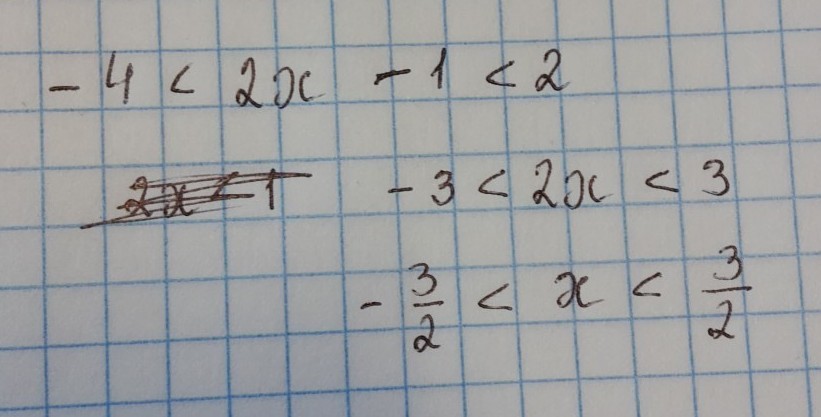 -4 < 2x - 1 < 2
-3 < 2x < 3
-3/2 < x < 3/2